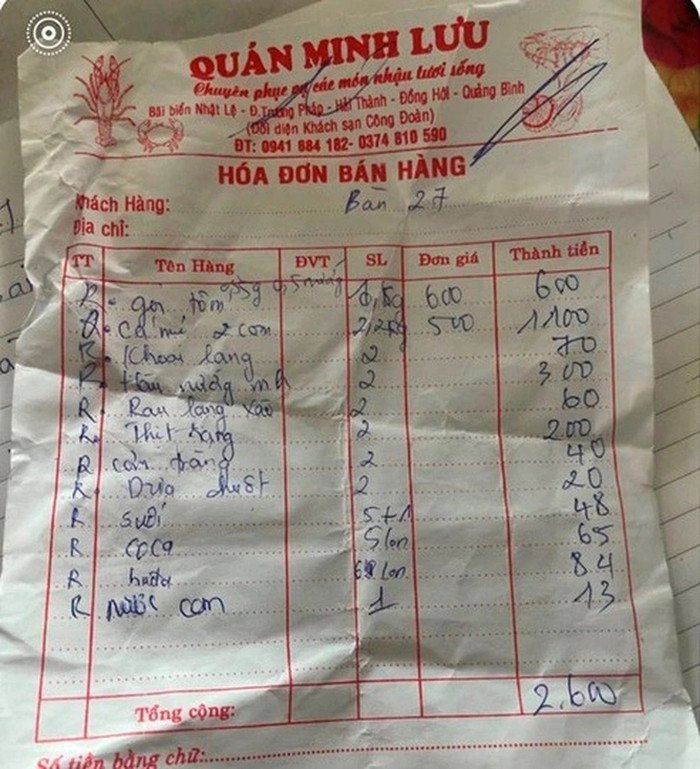 QUÁN MINH LƯU
Chuyên phục vụ các món nhậu tươi sống
Bãi biển Nhật Lệ - Đ.Trương Pháp - Hải Thành - Đồng Hới - Quảng Bình
(Đối diện Khách sạn Công Đoàn)
ĐT: 0941 684 182- 0374 810 590
HÓA ĐƠN BÁN HÀNG
Khách Hàng: Bàn 27
Địa chỉ:
TT Tên Hàng ĐVT SL Đơn giá Thành tiền
R. gỏi tôm 600 600
R. cá mú 2 con 2,2kg 500 1100
R. Khoai lang 2 70
R. Hàu nướng mỡ 2 300
R. Rau lang xào 2 60
R. Thịt rang 2 200
R cơm trắng 2 40
R. Dưa chuột 2 20
R suối 5+1 48
R coca 5 lon 65
R huda lon 84
R nước cam 1 13
Tổng cộng: 2.600
Số tiền bằng chữ: